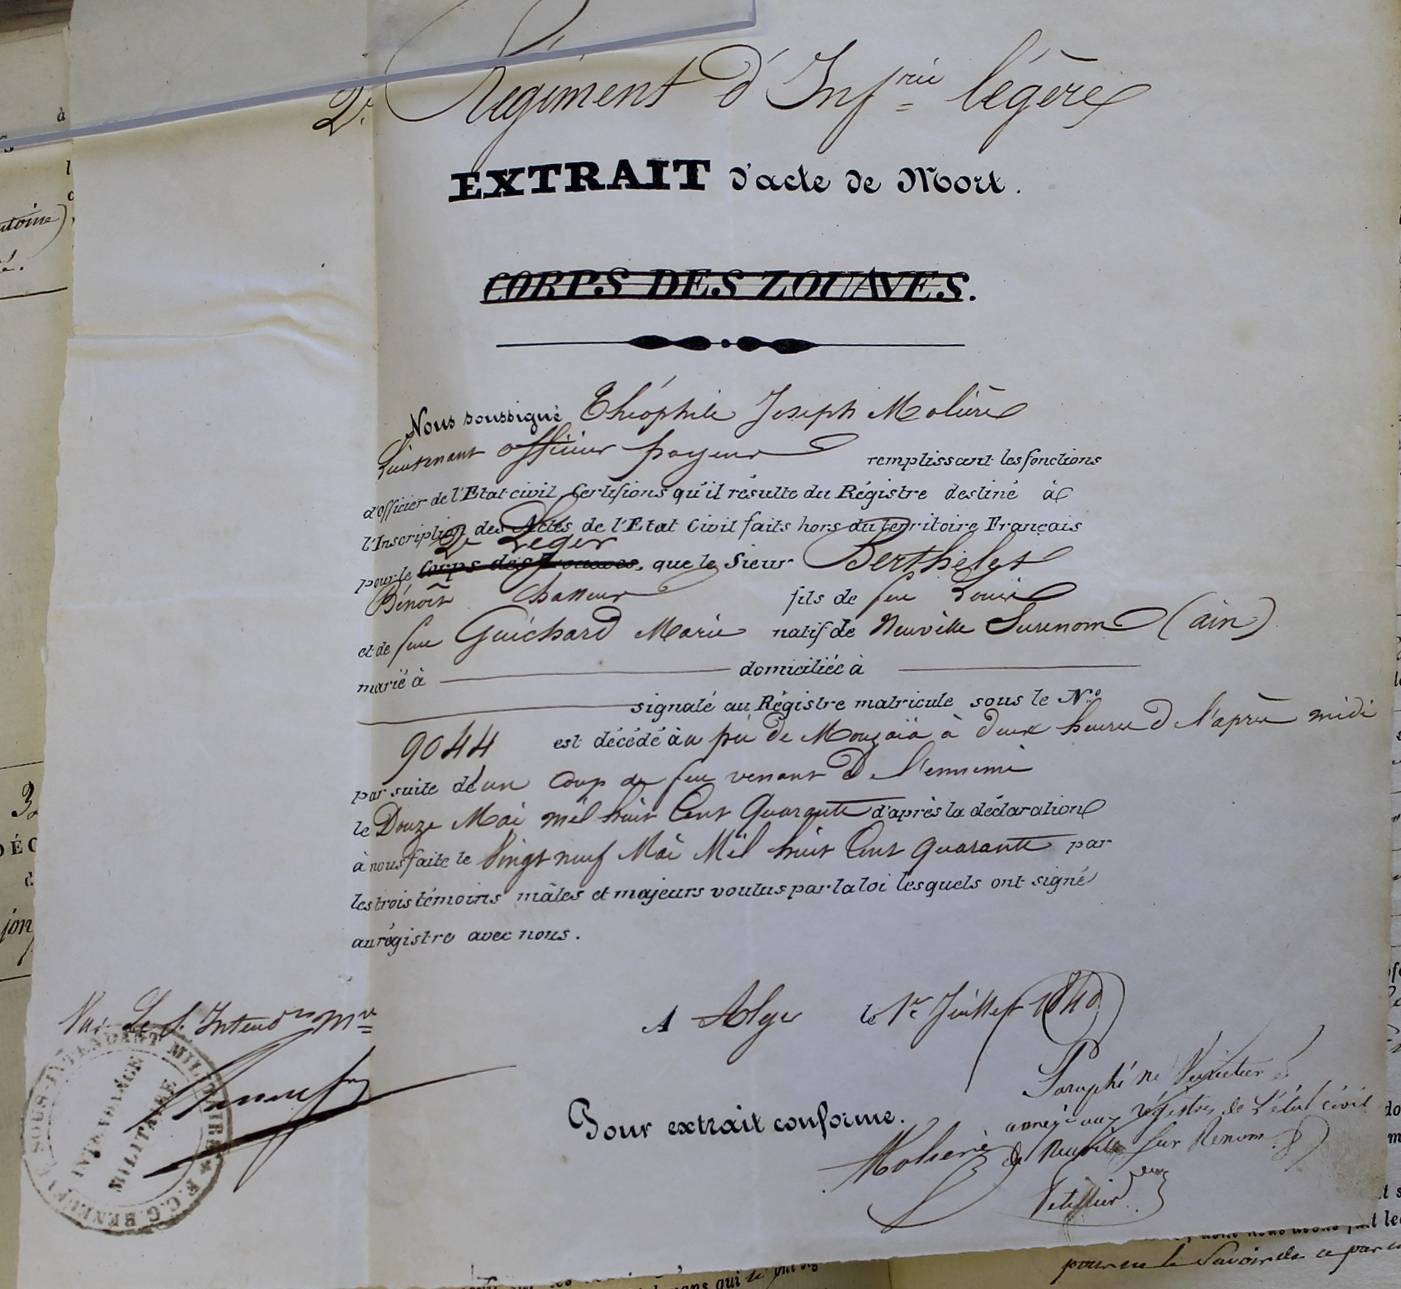 2e Régiment d'Infrie légère
EXTRAIT d'acte de Mort.
CORPS DES ZOUAVES.
Nous soussigné Théophile Joseph Molière
Lieutenant officier payeur remplissant les fonctions
d'officier de l'Etat civil, Certifions qu'il résulte du Régistre destiné à
l'Inscription des Actes de l'Etat Civil faits hors du territoire Français
2e Léger
pour le Corps des Zouaves, que le Sieur Berthelet
Benoit Chasseur fils de feu Louis
et de feue Guichard Marie natif de Neuville Surenom (ain)
marié à domiciliée à
signalé au Régistre matricule sous le No
9044 est décédé au pié de Mouzaïa à deux heures de l'après midi
par suite d'un coup de feu venant de l'ennemi
le Douze Mai mil huit Cent Quarante d'après la déclaration
à nous faite le Vingt neuf Mai Mil huit Cent Quarante par
les trois témoins mâles et majeurs voulus par la loi lesquels ont signé
au régistre avec nous.
A Alger le 1er Juillet 1840
Vu: Le S. Intendt Mre
SOUS-INTENDANT MILITAIRE
INTENDANCE
MILITAIRE
Pour extrait conforme.
Molière
Paraphé ne Varietur
annexé aux régistres de l'état civil
de Neuville sur Renom